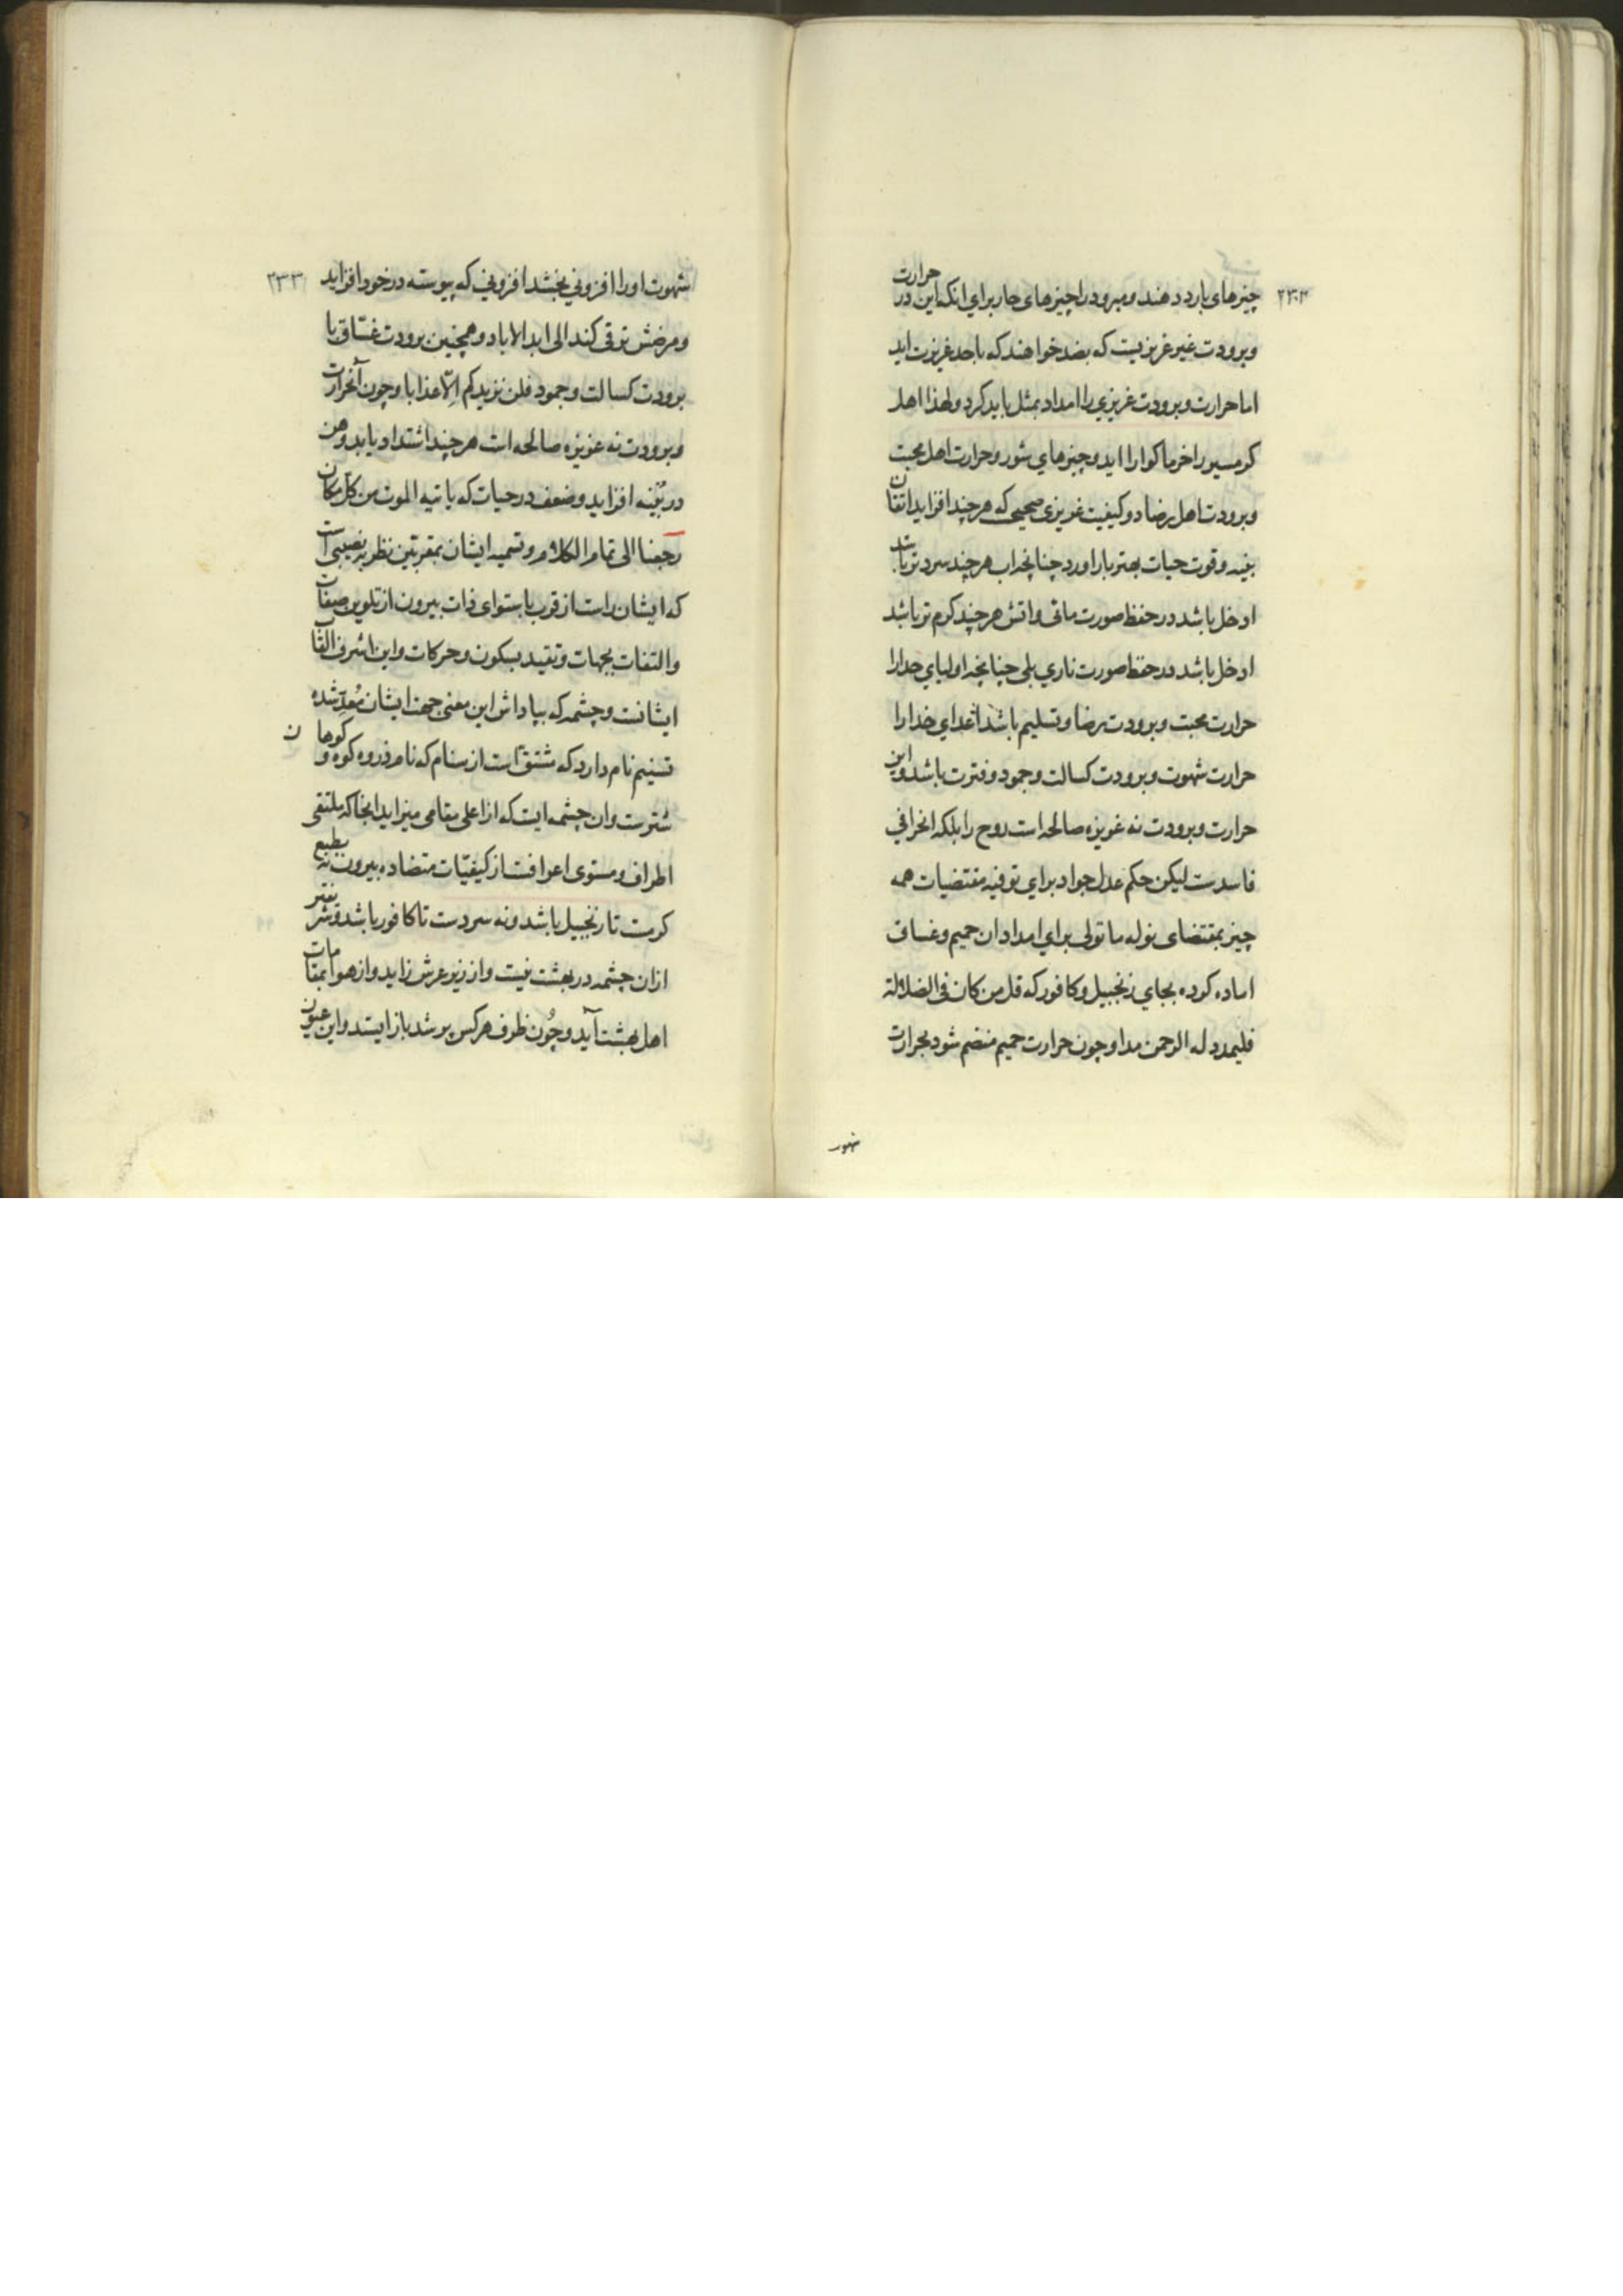 ۲۳۲
چیزهای بارد دهند و مبرود را چیزهای حار برای انکه این در حرارت
وبرودت غیر غریزیست که بضد خواهند که باحد غریزت اید
اما حرارت وبرودت غریزی را امداد بمثل باید کرد ولهذا اهل
کرمسیر را خرما کوارا اید وچیزهای شور وحرارت اهل محبت
وبرودت اهل رضا دو کیفیت غریزی صحیحی که هر چند افزاید اتقان
بنیه وقوت حیات بهتر بار اورد چنانچه اب هر چند سردتر باشد
ادخل باشد در حفظ صورت مائی واتش هر چند کرم تر باشد
ادخل باشد در حفظ صورت ناری بلی چنانچه اولیای خدا را
حرارت محبت وبرودت رضا وتسلیم باشد اعدای خدا را
حرارت شهوت وبرودت کسالت وجمود وفترت باشد واین
حرارت وبرودت نه غریزه صالحه است روح را بلکه انحرافی
فاسدست لیکن حکم عدل جواد برای توفیه مقتضیات همه
چیز بمقتضای نوله ما تولی برای امداد ان حمیم وغساق
اماده کرده بجای زنجبیل وکافور که قل من کان فی الضلالة
فلیمدد له الرحمن مدا وچون حرارت حمیم منضم شود بحرارت
شهوت
۲۳۳
شهوت او را افزونی بخشد افزونی که پیوسته در خود افزاید
ومرضش ترقی کند الی ابد الاباد وهمچنین برودت غسّاق با
برودت کسالت وجمود فلن نزیدکم الّا عذابا وچون آنحرارت
وبرودت نه غریزه صالحه است هر چند اشتداد یابد وهن
در بُنیه افزاید وضعف در حیات که یاتیه الموت من کل مکان
رجعنا الی تمام الکلام وتسمیه ایشان بمقربین نظر به نصیبی است
که ایشان راست از قرب باستوای ذات بیرون از تلوین صفات
والتفات بجهات وتقید بسکون وحرکات واین اشرف القاب
ایشانست وچشمه که بپاداش این معنی جهت ایشان مُعد شده
تسنیم نام دارد که مشتق است از سنام که نام ذروه کوه و کوهان
شترست وان چشمه ایست که از اعلی مقامی میزاید انجا که ملتقی
اطراف ومستوی اعرافست از کیفیّات متضاده بیرون نه بطبع
کرمست تا زنجبیل باشد ونه سردست تا کافور باشد ونیز
ازان چشمه در بهشت نیست واز زیر عرش زاید واز هوا بمقامات
اهل بهشت آید وچُون ظرف هر کس پر شد باز ایستد واین عیون